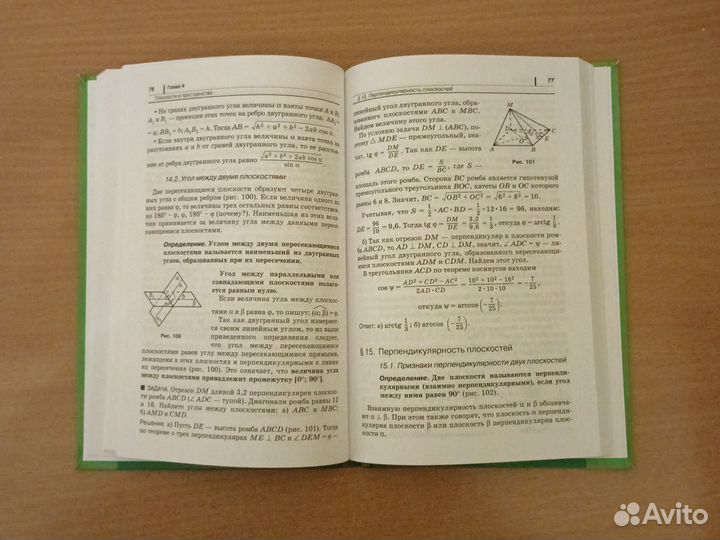 76 Глава 4
Плоскости в пространстве
• На гранях двугранного угла величины α взяты точки A и B;
A₁ и B₁ — проекции этих точек на ребро двугранного угла; AA₁ =
= a; BB₁ = b; A₁B₁ = h. Тогда AB = √(h² + a² + b² − 2ab cos α).
• Если внутри двугранного угла величины α взята точка на расстояниях
a и b от граней двугранного угла, то ее расстояние
от ребра двугранного угла равно √(a² + b² + 2ab cos α) / sin α.
14.2. Угол между двумя плоскостями
Две пересекающиеся плоскости образуют четыре двугранных
угла с общим ребром (рис. 100). Если величина одного из
них равна φ, то величины трех остальных равны соответственно
180° − φ, φ, 180° − φ (почему?). Наименьшая из этих величин
принимается за величину угла между данными пересекающимися
плоскостями.
Определение. Углом между двумя пересекающимися
плоскостями называется наименьший из двугранных
углов, образованных при их пересечении.
Угол между параллельными или
совпадающими плоскостями полагается
равным нулю.
Если величина угла между плоскостями
α и β равна φ, то пишут: (α; β) = φ.
Так как двугранный угол измеряется
своим линейным углом, то из выше
приведенного определения следует,
что угол между пересекающимися
Рис. 100
плоскостями равен углу между пересекающимися прямыми,
лежащими в этих плоскостях и перпендикулярными к линии их
пересечения (рис. 100). Это означает, что величина угла
между плоскостями принадлежит промежутку [0°; 90°].
■ ЗАДАЧА. Отрезок DM длиной 3,2 перпендикулярен плоскости
ромба ABCD (∠ ADC — тупой). Диагонали ромба равны 12
и 16. Найдите углы между плоскостями: а) ABC и MBC;
б) AMD и CMD.
Решение. а) Пусть DE — высота ромба ABCD (рис. 101). Тогда
по теореме о трех перпендикулярах ME ⊥ BC и ∠ DEM = φ —
§ 15. Перпендикулярность плоскостей 77
линейный угол двугранного угла, образованного
плоскостями ABC и MBC.
Найдем величину этого угла.
По условию задачи DM ⊥ (ABC), поэтому
△ MDE — прямоугольный, значит,
tg φ = DM/DE. Так как DE — высота
ромба ABCD, то DE = S/BC, где S —
M
D
C
O
E
A
B
Рис. 101
площадь этого ромба. Сторона BC ромба является гипотенузой
прямоугольного треугольника BOC, катеты OB и OC которого
равны 6 и 8. Значит, BC = √(OB² + OC²) = √(6² + 8²) = 10.
Учитывая, что S = 1/2 · AC · BD = 1/2 · 12 · 16 = 96, находим:
DE = 96/10 = 9,6. Тогда tg φ = DM/DE = 3,2/9,6 = 1/3, откуда φ = arctg 1/3.
б) Так как отрезок DM — перпендикуляр к плоскости ромба
ABCD, то AD ⊥ DM, CD ⊥ DM, значит, ∠ ADC = ψ — линейный
угол двугранного угла, образованного пересекающимися
плоскостями ADM и CDM. Найдем этот угол.
В треугольнике ACD по теореме косинусов находим
cos ψ = (AD² + CD² − AC²)/(2AD · CD) = (10² + 10² − 16²)/(2 · 10 · 10) = −7/25,
откуда ψ = arccos (−7/25).
Ответ: а) arctg 1/3; б) arccos (−7/25).
§ 15. Перпендикулярность плоскостей
15.1. Признаки перпендикулярности двух плоскостей
Определение. Две плоскости называются перпендикулярными
(взаимно перпендикулярными), если угол
между ними равен 90° (рис. 102).
Взаимную перпендикулярность плоскостей α и β обозначают
α ⊥ β. При этом также говорят, что плоскость α перпендикулярна
плоскости β или плоскость β перпендикулярна плоскости
α.
Avito